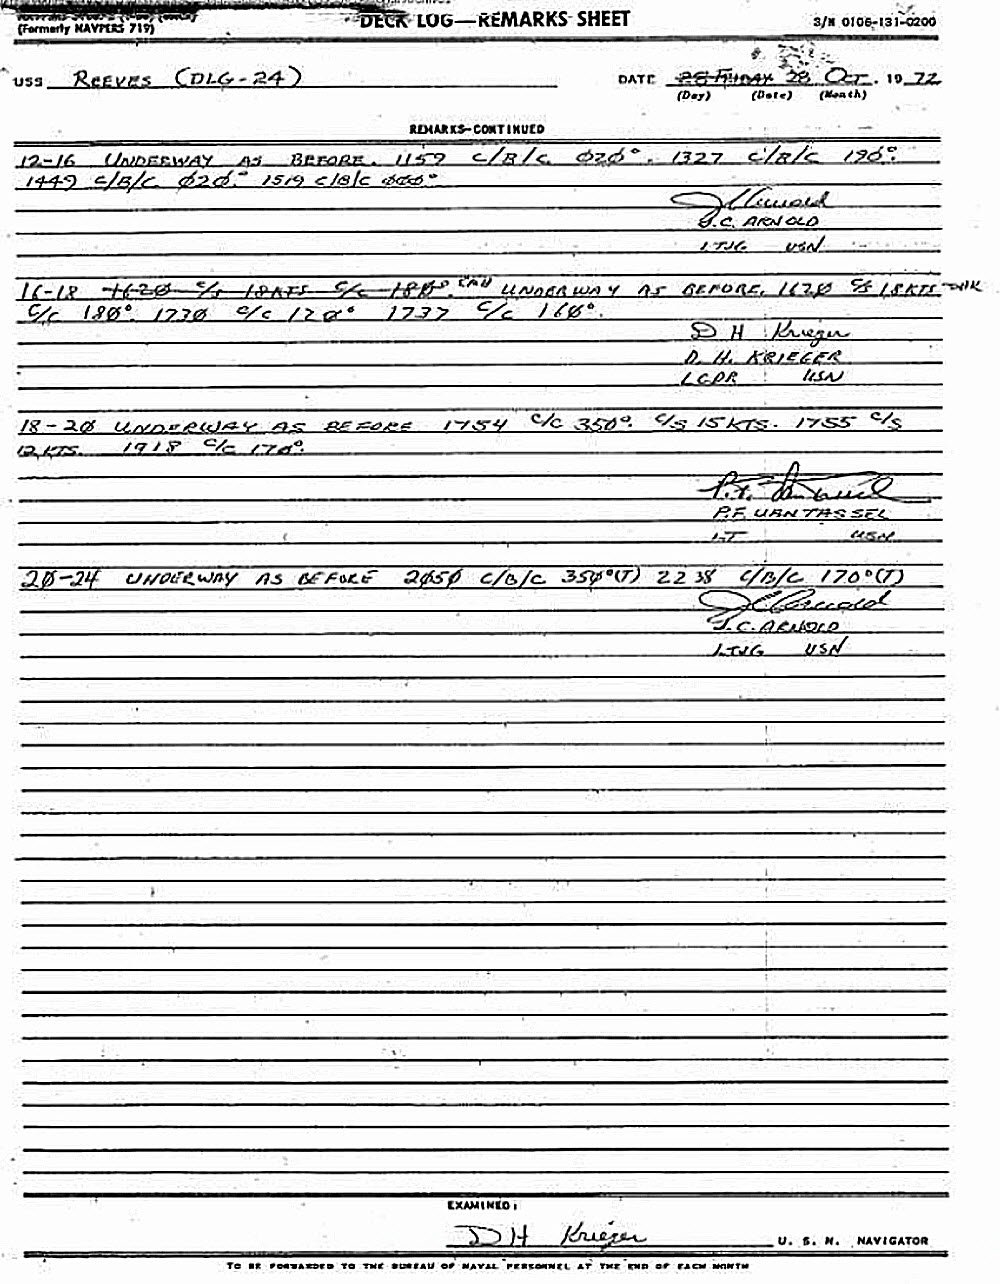 (Formerly NAVPERS 719)
DECK LOG—REMARKS SHEET
S/N 0106-131-0200
USS REEVES (DLG-24)
DATE 28 OCT. 1972
(Day) (Date) (Month)
REMARKS—CONTINUED
12-16 UNDERWAY AS BEFORE. 1159 C/B/C Ø2Ø°. 1327 C/B/C 19Ø°.
1449 C/B/C Ø2Ø.° 1519 C/B/C ØØØ°
J.C. ARNOLD
LTJG USN
16-18 162Ø C/S 18KTS C/C 18Ø°. UNDERWAY AS BEFORE. 162Ø C/S 18KTS DHK
C/C 18Ø°. 173Ø C/C 12Ø° 1737 C/C 16Ø°.
D H Krieger
D. H. KRIEGER
LCDR USN
18-2Ø UNDERWAY AS BEFORE 1754 C/C 35Ø°. C/S 15KTS. 1755 C/S
12KTS. 1918 C/C 17Ø°.
P.F. VANTASSEL
LT USN
2Ø-24 UNDERWAY AS BEFORE 2Ø5Ø C/B/C 35Ø°(T) 2238 C/B/C 17Ø°(T)
J.C. ARNOLD
LTJG USN
EXAMINED:
D H Krieger U. S. N. NAVIGATOR
TO BE FORWARDED TO THE BUREAU OF NAVAL PERSONNEL AT THE END OF EACH MONTH